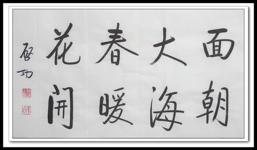 面朝
大海
春暖
花開
啓功